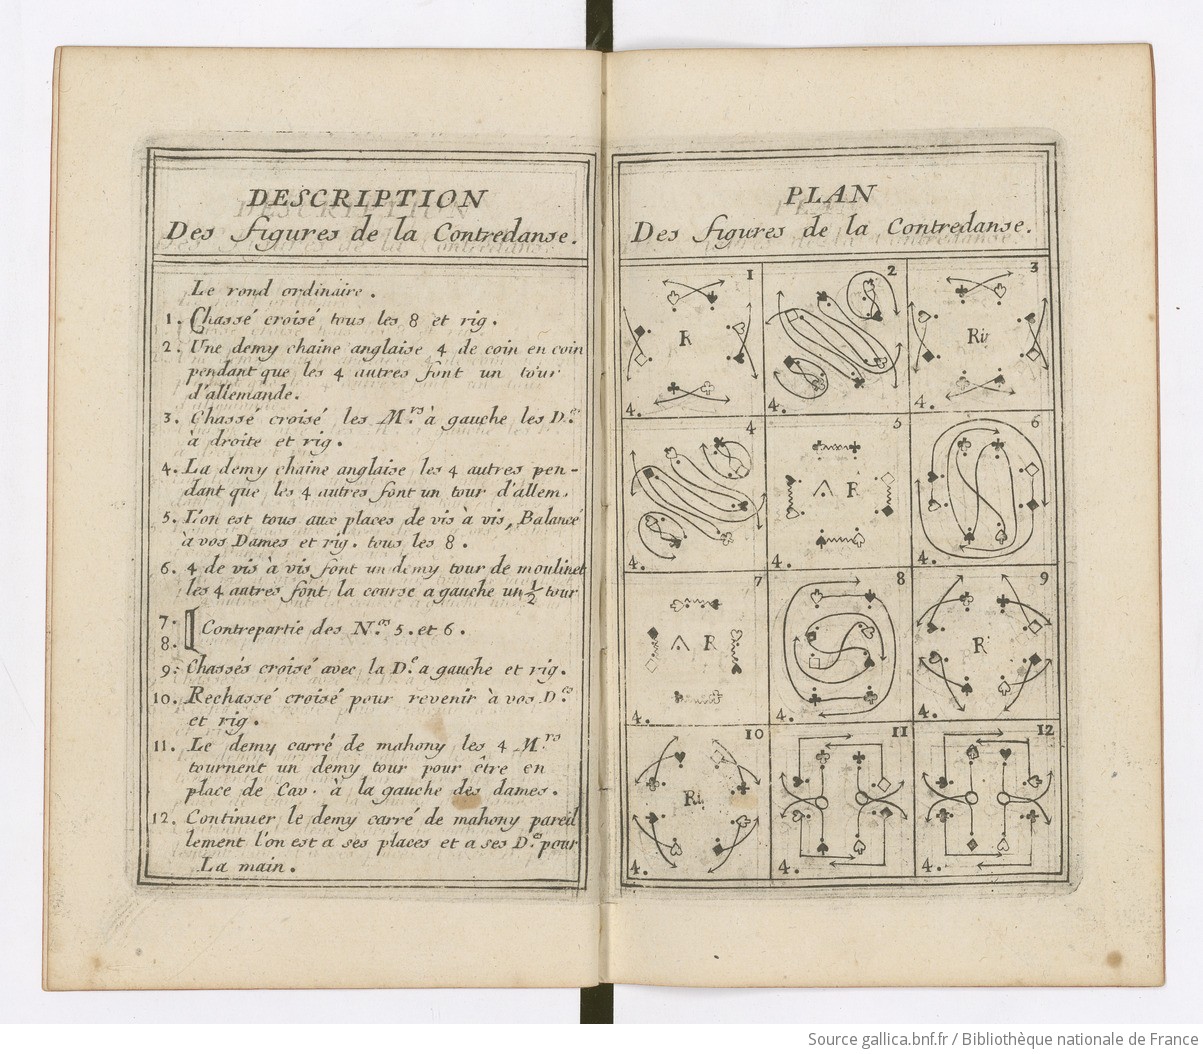 DESCRIPTION
Des figures de la Contredanse.
Le rond ordinaire.
1. Chassé croisé tous les 8 et rig.
2. Une demy chaine anglaise 4 de coin en coin
pendant que les 4 autres font un tour
d'allemande.
3. Chassé croisé les M.rs à gauche les D.es
à droite et rig.
4. La demy chaine anglaise les 4 autres pen-
dant que les 4 autres font un tour d'allem.
5. L'on est tous aux places de vis à vis, Balancé
à vos Dames et rig. tous les 8.
6. 4 de vis à vis font un demy tour de moulinet
les 4 autres font la course a gauche un 1/2 tour
7.
8. [ Contrepartie des N.os 5. et 6.
9. Chassés croisé avec la D.e a gauche et rig.
10. Rechassé croisé pour revenir à vos D.es
et rig.
11. Le demy carré de mahony les 4 M.rs
tournent un demy tour pour être en
place de Cav. à la gauche des dames.
12. Continuer le demy carré de mahony pareil
lement l'on est a ses places et a ses D.es pour
La main.
PLAN
Des figures de la Contredanse.
1 2 3
R Rig
4. 4. 4.
4 5 6
R
4. 4. 4.
7 8 9
R R
4. 4. 4.
10 11 12
R
4. 4. 4.
Source gallica.bnf.fr / Bibliothèque nationale de France